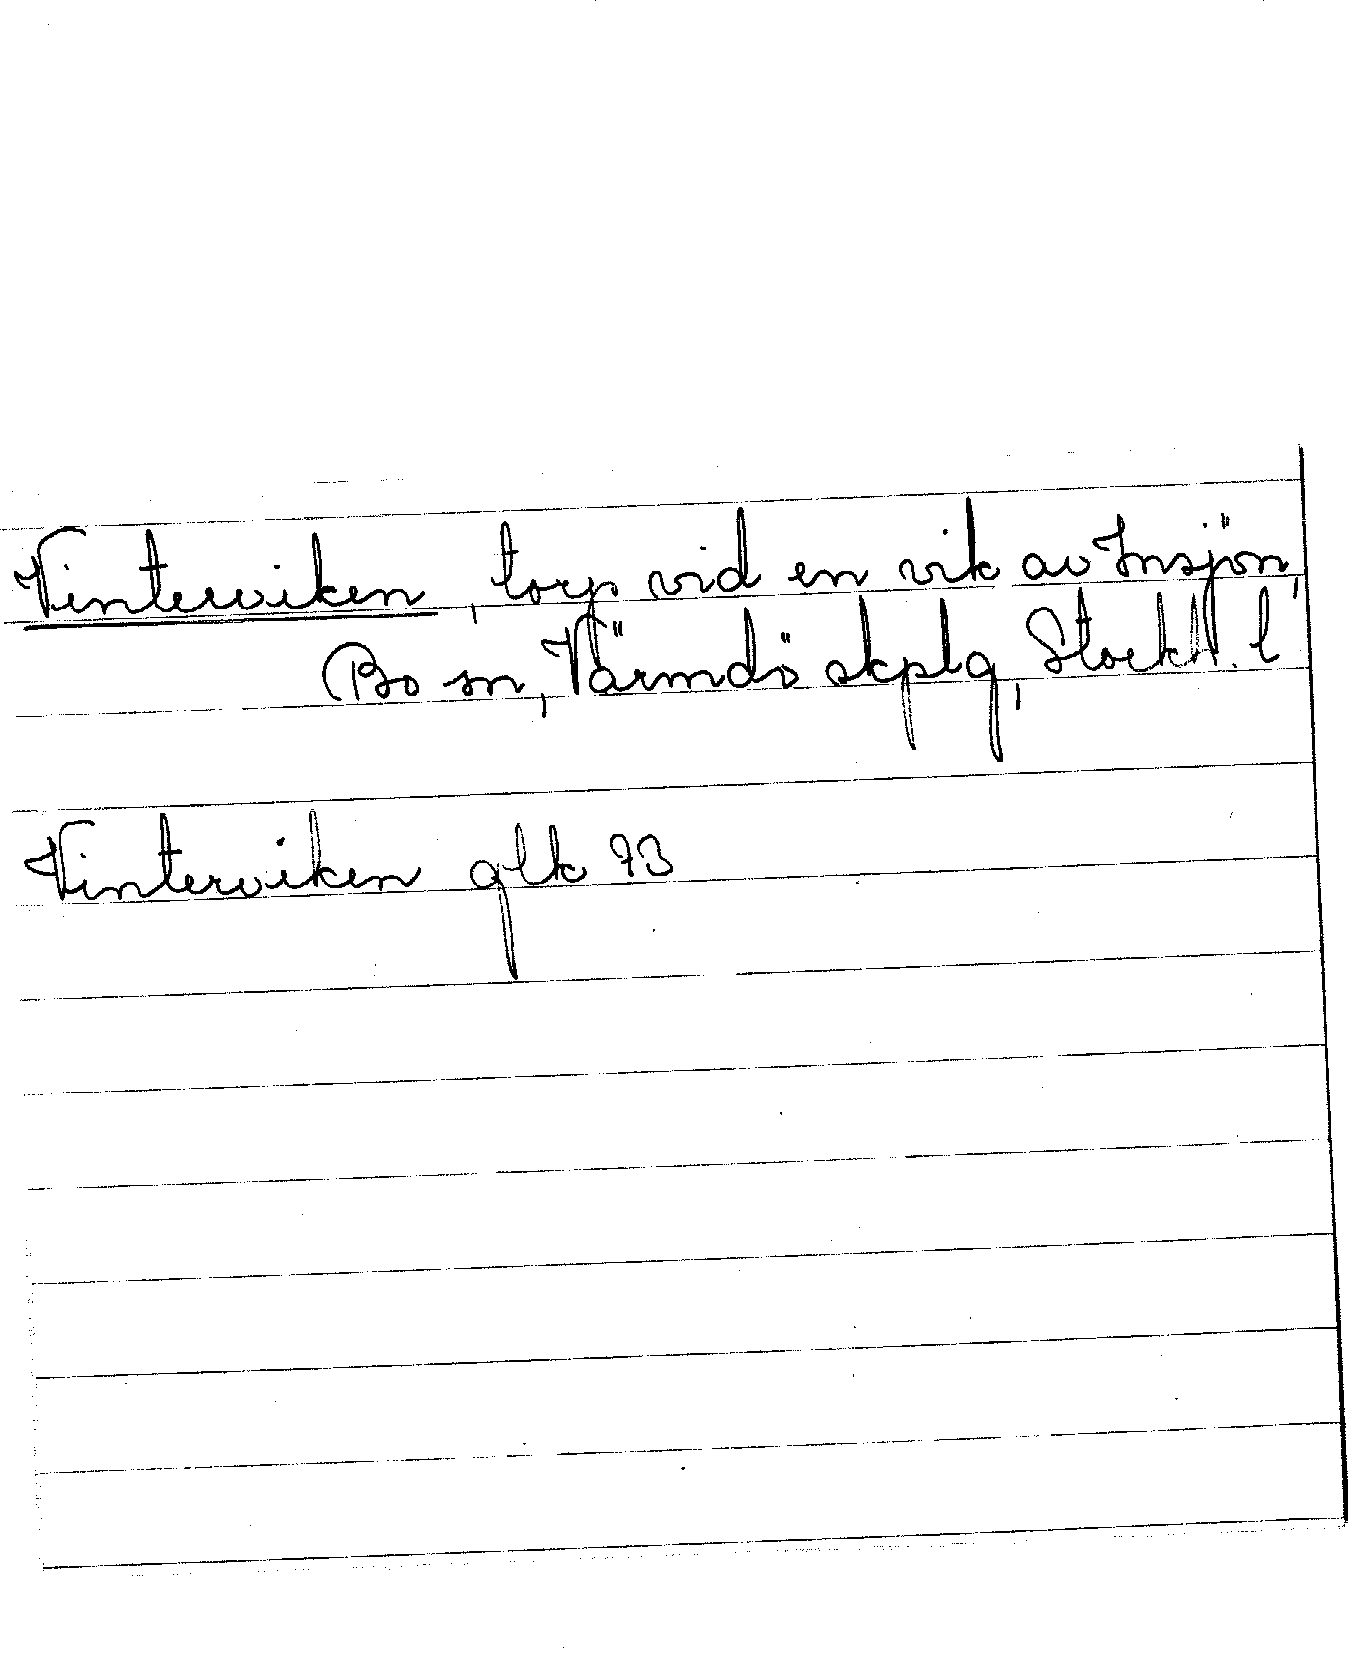 Vinterviken, torp vid en vik av Insjön,
Bo sn, Värmdö skplg, Stockh. l
Vinterviken glk 93